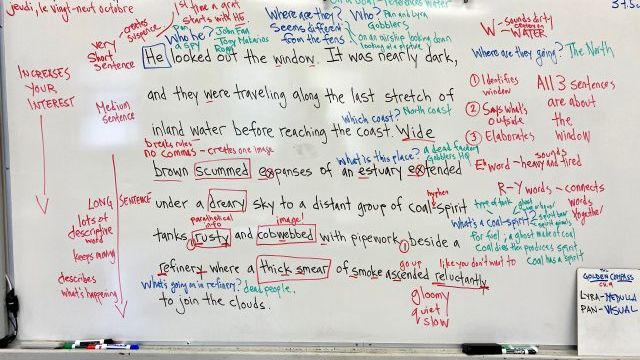 jeudi, le vingt-neuf octobre
very short sentence
creates suspence
1st time a grat starts with HE
Pan
Who he?
a spy
John Faa
Tony Makarios
Roger
Where are they?
Seems different from the fens
Who?
Pan and Lyra
Gobblers
on an airship looking down
looking at a picture
references WATER
W - sounds dirty
centers on WATER
Where are they going? The North
He looked out the window. It was nearly dark,
INCREASES YOUR INTEREST
Medium sentence
and they were traveling along the last stretch of
Which coast? North coast
inland water before reaching the coast. Wide
① Identifies window
② Says what's outside
③ Elaborates
All 3 sentences are about the window
breaks rules
no commas - creates one image
What is this place? a dead factory
Gobblers HQ
brown scummed expanses of an estuary extended
E word - heavy and tired
sounds
R-Y words - connects words together
LONG SENTENCE
lots of descriptive word
keeps moving
describes what's happening
hyphen
under a dreary sky to a distant group of coal-spirit
parathetical info
image
What's a coal-spirit?
type of tank
ghost
for fuel, a ghost made of coal
Coal dies then produces spirit
Coal has a spirit
tanks ① rusty and cobwebbed with pipework, ① beside a
go up
like you don't want to
refinery where a thick smear of smoke ascended reluctantly
What's going on in refinery? dead people.
gloomy
quiet
slow
to join the clouds.
The GOLDEN COMPASS
Ch. 9
LYRA - MEDULLA
PAN - VISUAL